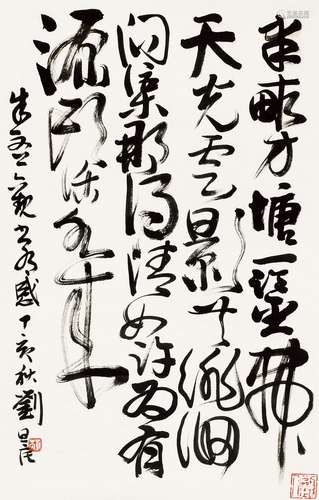 半畝方塘一鑒開
天光雲影共徘徊
問渠那得清如許為有
源頭活水來
朱觀書有感丁亥秋劉旦宅